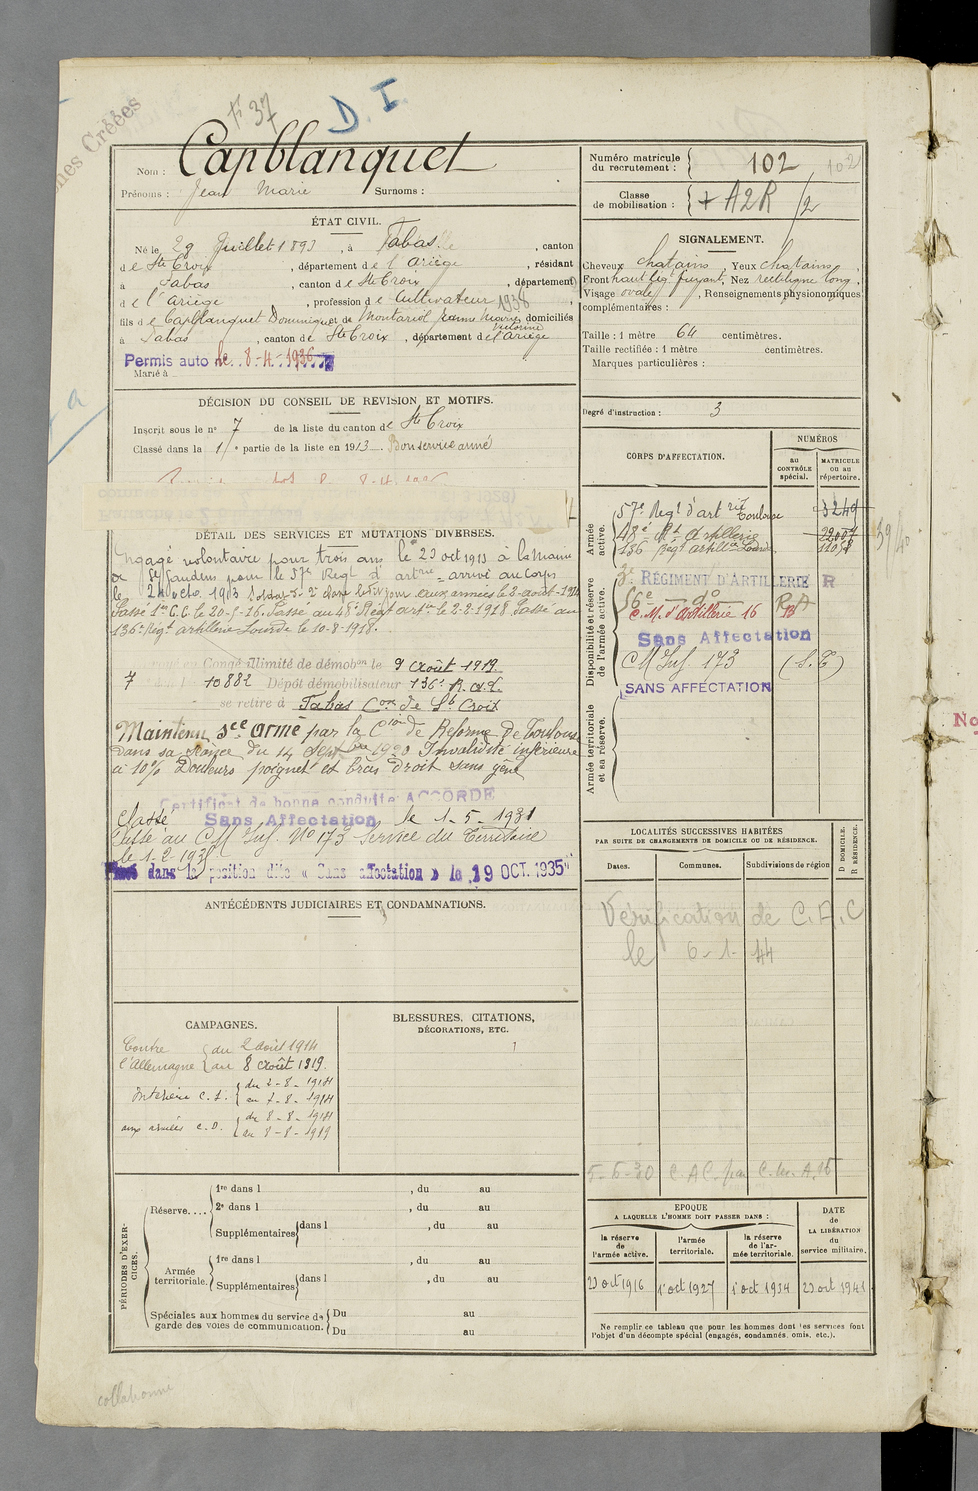 nes Créées
F 37
D. I
Nom : Capblanquet
Prénoms : Jean Marie Surnoms :
ÉTAT CIVIL.
Né le 29 Juillet 1893, à Tabas, canton
de Ste Croix, département de l'Ariège, résidant
à Tabas, canton de Ste Croix, département
de l'Ariège, profession de Cultivateur 1938
fils de Capblanquet Dominique et de Montariol Jeanne Marie Victorine domiciliés
à Tabas, canton de Ste Croix, département de l'Ariège
Permis auto le 8-4-1936
Marié à
DÉCISION DU CONSEIL DE REVISION ET MOTIFS.
Inscrit sous le n° 7 de la liste du canton de Ste Croix
Classé dans la 1re partie de la liste en 1913. Bon service armé
DÉTAIL DES SERVICES ET MUTATIONS DIVERSES.
Engagé volontaire pour trois ans le 23 oct 1913 à la Mairie
de St Gaudens pour le 57e Regt d'artrie arrivé au Corps
le 24 octo. 1913 soldat de 2e classe aux armées le 8-août-1914
Passé 1er C.C. le 20-5-16. Passé au 48e Regt art le 2-2-1918 Passé au
136e Regt artillerie Lourde le 10-8-1918.
Congé illimité de démobon le 9 Août 1919.
7 10882 Dépôt démobilisateur 136e R.A.L.
se retire à Tabas Con de Ste Croix
Maintenu sce armé par la Cion de Réforme de Toulouse
dans sa séance du 14 Septbre 1920 Invalidité inférieure
à 10% Douleurs poignet et bras droit sans gêne
Certificat de bonne conduite ACCORDÉ
Classé Sans Affectation le 1-5-1931
Passé au C M Inf. N° 173 Service du Territoire
le 1-2-193
dans la position dite « Sans affectation » le 19 OCT. 1935
ANTÉCÉDENTS JUDICIAIRES ET CONDAMNATIONS.
CAMPAGNES.
Contre l'Allemagne { du 2 août 1914
au 8 Août 1919.
Intérieur C.S. { du 2-8-1914
au 7-8-1914
aux armées C.D. { du 8-8-1914
au 8-8-1919
BLESSURES, CITATIONS,
DÉCORATIONS, ETC.
PÉRIODES D'EXERCICES.
Réserve.... 1re dans l , du au
2e dans l , du au
Supplémentaires dans l , du au
Armée territoriale. 1re dans l , du au
Supplémentaires dans l , du au
Spéciales aux hommes du service de Du au
garde des voies de communication. Du au
Numéro matricule
du recrutement : 102 102
Classe
de mobilisation : + A2R /2
SIGNALEMENT.
Cheveux chatains, Yeux chatains,
Front haut leg't fuyant, Nez rectiligne long,
Visage ovale, Renseignements physionomiques
complémentaires :
Taille : 1 mètre 64 centimètres.
Taille rectifiée : 1 mètre centimètres.
Marques particulières :
Degré d'instruction : 3
CORPS D'AFFECTATION.
NUMÉROS
au CONTRÔLE spécial.
MATRICULE ou au répertoire.
Armée active.
57e Regt d'artrie Toulouse 3249
48e Rt Artillerie 22007
136 Regt artillie Lourde 11098
Disponibilité et réserve de l'armée active.
RÉGIMENT D'ARTILLERIE R
56e do R.A
C.M. d'Artillerie 16
Sans Affectation
C M Inf. 173 (S.T)
SANS AFFECTATION
Armée territoriale et sa réserve.
LOCALITÉS SUCCESSIVES HABITÉES
PAR SUITE DE CHANGEMENTS DE DOMICILE OU DE RÉSIDENCE.
Dates. Communes. Subdivisions de région
D DOMICILE. R RÉSIDENCE.
Vérification de C.A.C
le 6-1-44
EPOQUE
A LAQUELLE L'HOMME DOIT PASSER DANS :
la réserve de l'armée active.
l'armée territoriale.
la réserve de l'armée territoriale.
DATE DE LA LIBÉRATION du service militaire.
23 oct 1916 1er oct 1927 1er oct 1934 23 oct 1941
Ne remplir ce tableau que pour les hommes dont les services font
l'objet d'un décompte spécial (engagés, condamnés, omis, etc.).